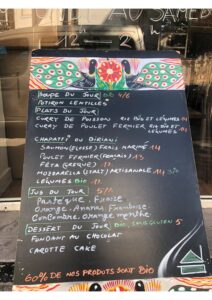 AU SAMED
SOUPE DU JOUR BIO 4/6
POTIRON LENTILLES
PLATS DU JOUR
CURRY DE POISSON RIZ BIO ET LÉGUMES 14
CURRY DE POULET FERMIER RIZ BIO ET LÉGUMES 14
CHAPATI OU BIRIANI
SAUMON (ECOSSE) FRAIS MARINÉ 14
POULET FERMIER (FRANÇAIS) 13
FETA (GRECQUE) 12
MOZZARELLA (ITALY) ARTISANALE 14
LÉGUMES BIO 12
JUS DU JOUR 5/
Pastèque, Fraise
Orange, Ananas, Framboise
Concombre, Orange, menthe
DESSERT DU JOUR BIO, SANS GLUTEN 5
FONDANT AU CHOCOLAT
CAROTTE CAKE
60% DE NOS PRODUITS SONT BIO